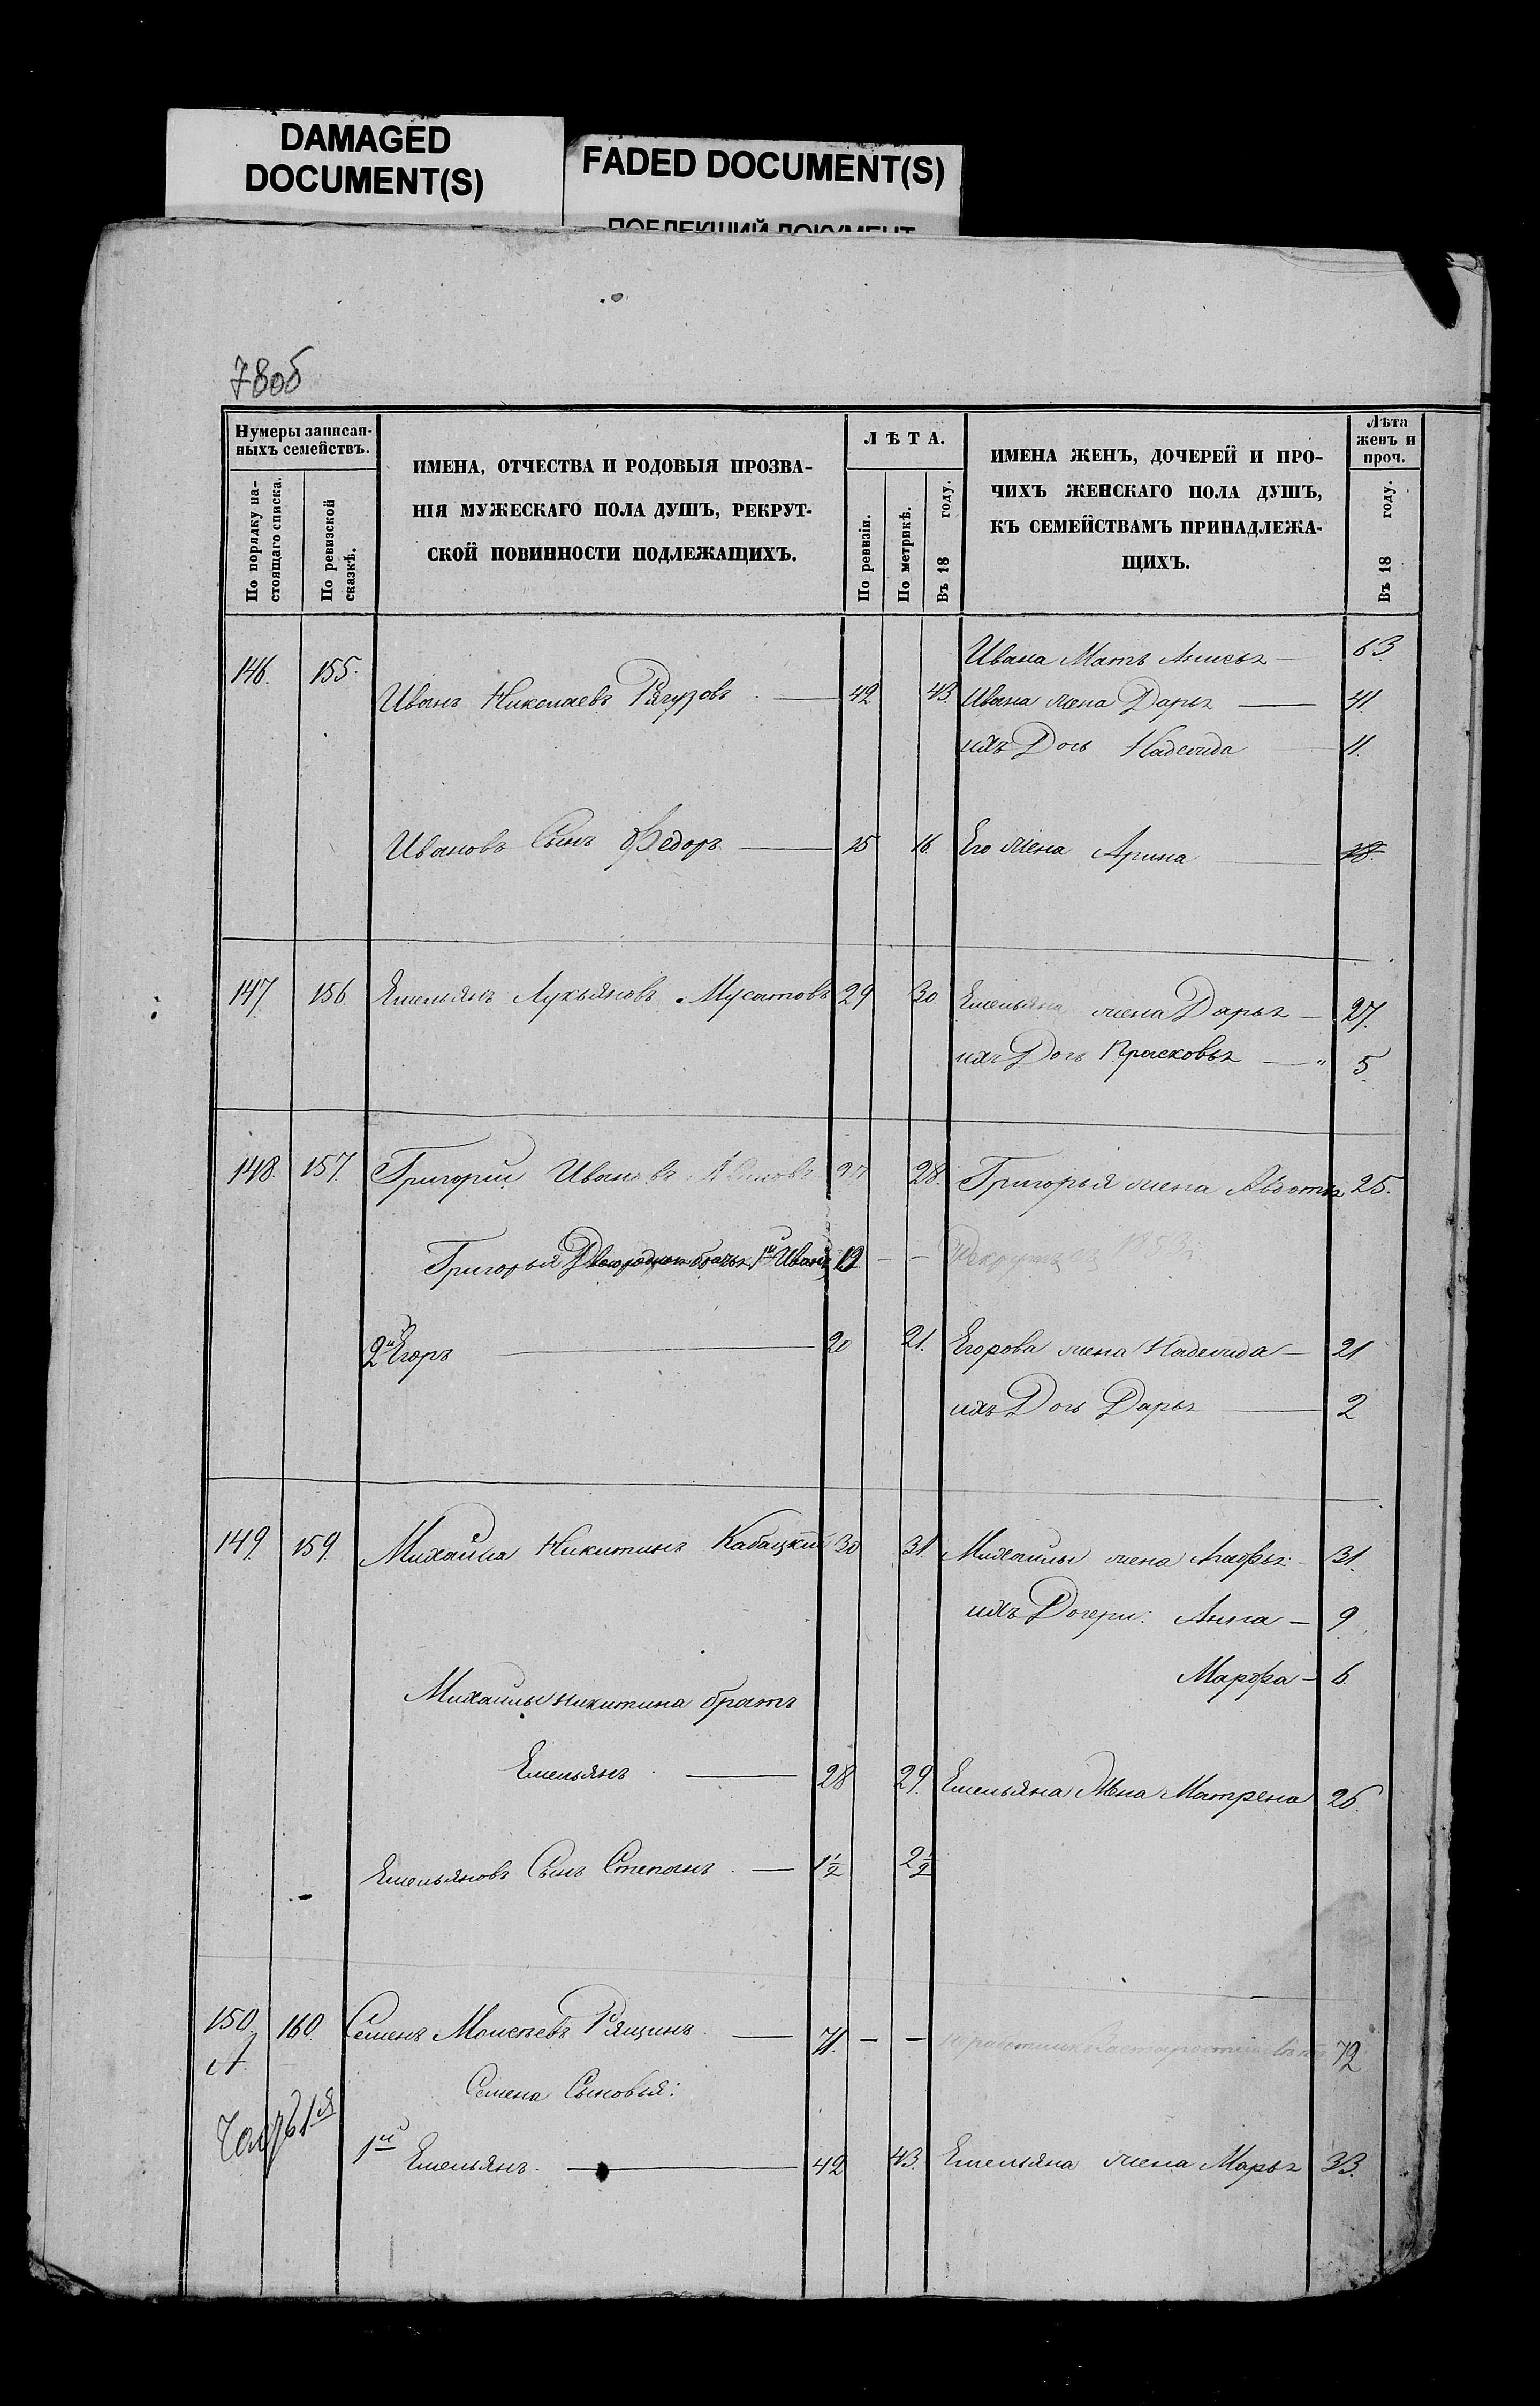 DAMAGED
DOCUMENT(S)
FADED DOCUMENT(S)
ПОБЛЕКШИЙ ДОКУМЕНТ
78об
Нумеры записан-
ныхъ семействъ.
По порядку на-
стоящаго списка.
По ревизской
сказкѣ.
ИМЕНА, ОТЧЕСТВА И РОДОВЫЯ ПРОЗВА-
НІЯ МУЖЕСКАГО ПОЛА ДУШЪ, РЕКРУТ-
СКОЙ ПОВИННОСТИ ПОДЛЕЖАЩИХЪ.
ЛѢТА.
По ревизіи.
По метрикѣ.
Въ 18 году.
ИМЕНА ЖЕНЪ, ДОЧЕРЕЙ И ПРО-
ЧИХЪ ЖЕНСКАГО ПОЛА ДУШЪ,
КЪ СЕМЕЙСТВАМЪ ПРИНАДЛЕЖА-
ЩИХЪ.
Лѣта
женъ и
проч.
Въ 18 году.
Ивана Мать Анисья — 63.
146. 155. Иванъ Николаевъ Рягузовъ — 42 43. Ивана жена Дарья — 41.
ихъ Дочь Надежда 11.
Ивановъ Сынъ Федоръ — 15 16. Его жена Арина — 18.
147. 156. Емельянъ Лукьяновъ Мусатовъ 29 30. Емельяна жена Дарья — 27.
ихъ Дочь Прасковья — " 5.
148. 157. Григорій Ивановъ 27 28. Григорья жена Авдотья 25.
Григорья Двоюродные братья 1й Иванъ 12 — — 1853
2й Егоръ — 20 21. Егорова жена Надежда — 21
ихъ Дочь Дарья — 2
149. 159. Михайла Никитинъ Кабацкій 30 31. Михайлы жена Агафья — 31.
ихъ Дочери: Анна — 9.
Марфа — 6.
Михайлы Никитина братъ
Емельянъ — 28 29. Емельяна жена Матрена 26.
Емельяновъ Сынъ Степанъ — 1½ 2½
150. 160. Семенъ Моисеевъ Рящинъ — 71. — — 72
А
Семена Сыновья:
1й Емельянъ — 42 43. Емельяна жена Марья 33.